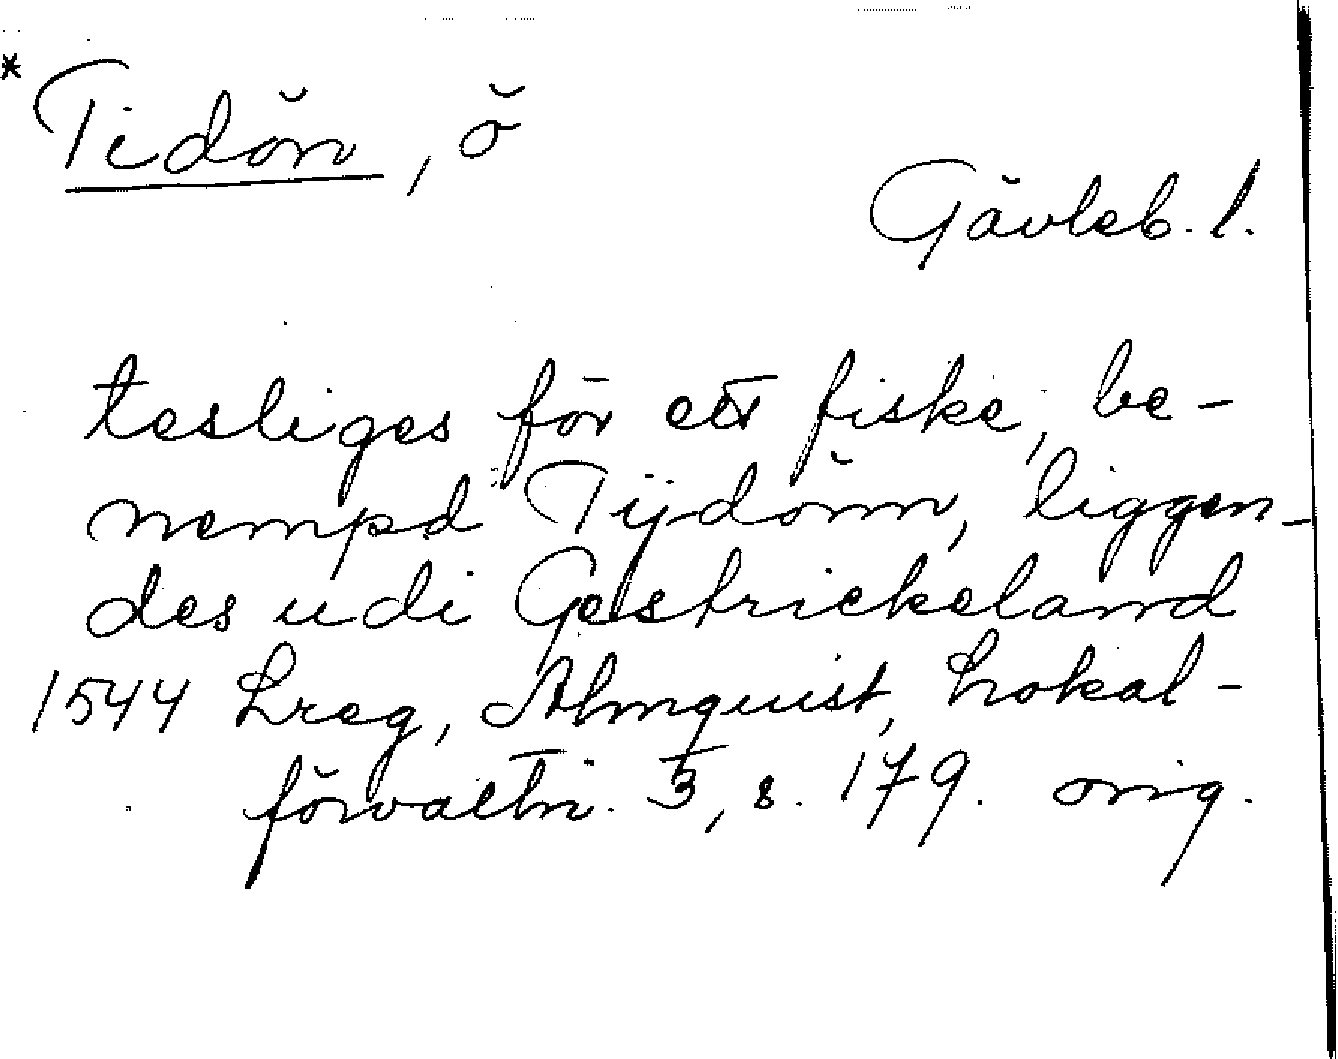 * Tidön, ö
Gävleb. l.
tesliges för ett fiske, be-
nempd Tijdönn, liggen-
des udi Gestrickeland
1544 Lreg, Almquist, Lokal-
förvaltn. 3, s. 179. orig.